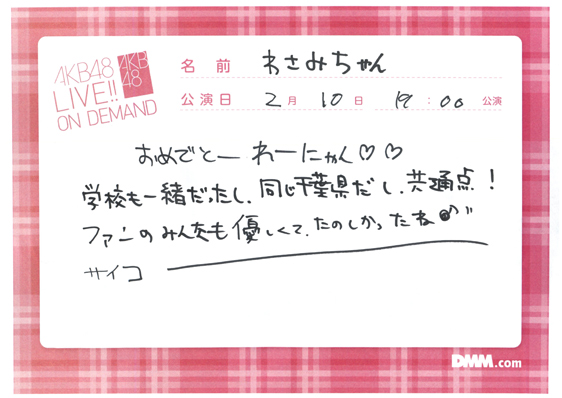 AKB48
LIVE!!
ON DEMAND
AKB
48
名前 わさみちゃん
公演日 2月 10日 19:00 公演
おめでとー わーにゃん♡♡
学校も一緒だったし、同じ千葉県だし、共通点!
ファンのみんなも優しくて、たのしかったね
サイコー
DMM.com